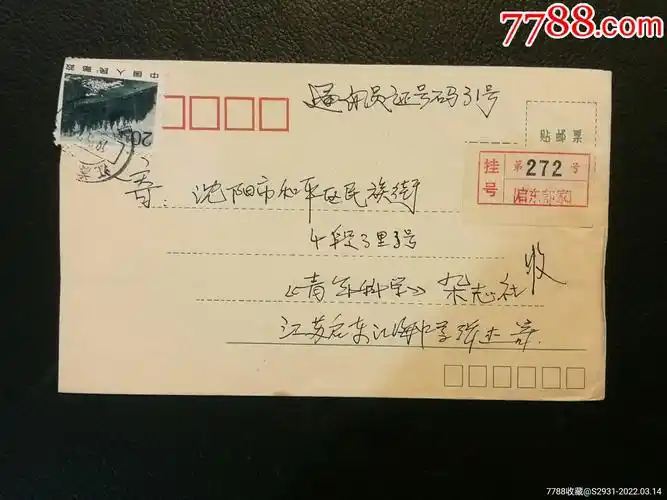 7788.com
中国人民邮政
20
通讯员证号码31号
贴邮票
挂号
第272号
启东
寄:
沈阳市和平区民族街
4段3里3号
《青年科学》杂志社
收
江苏启东江海中学张士寄.
7788收藏@S2931-2022.03.14